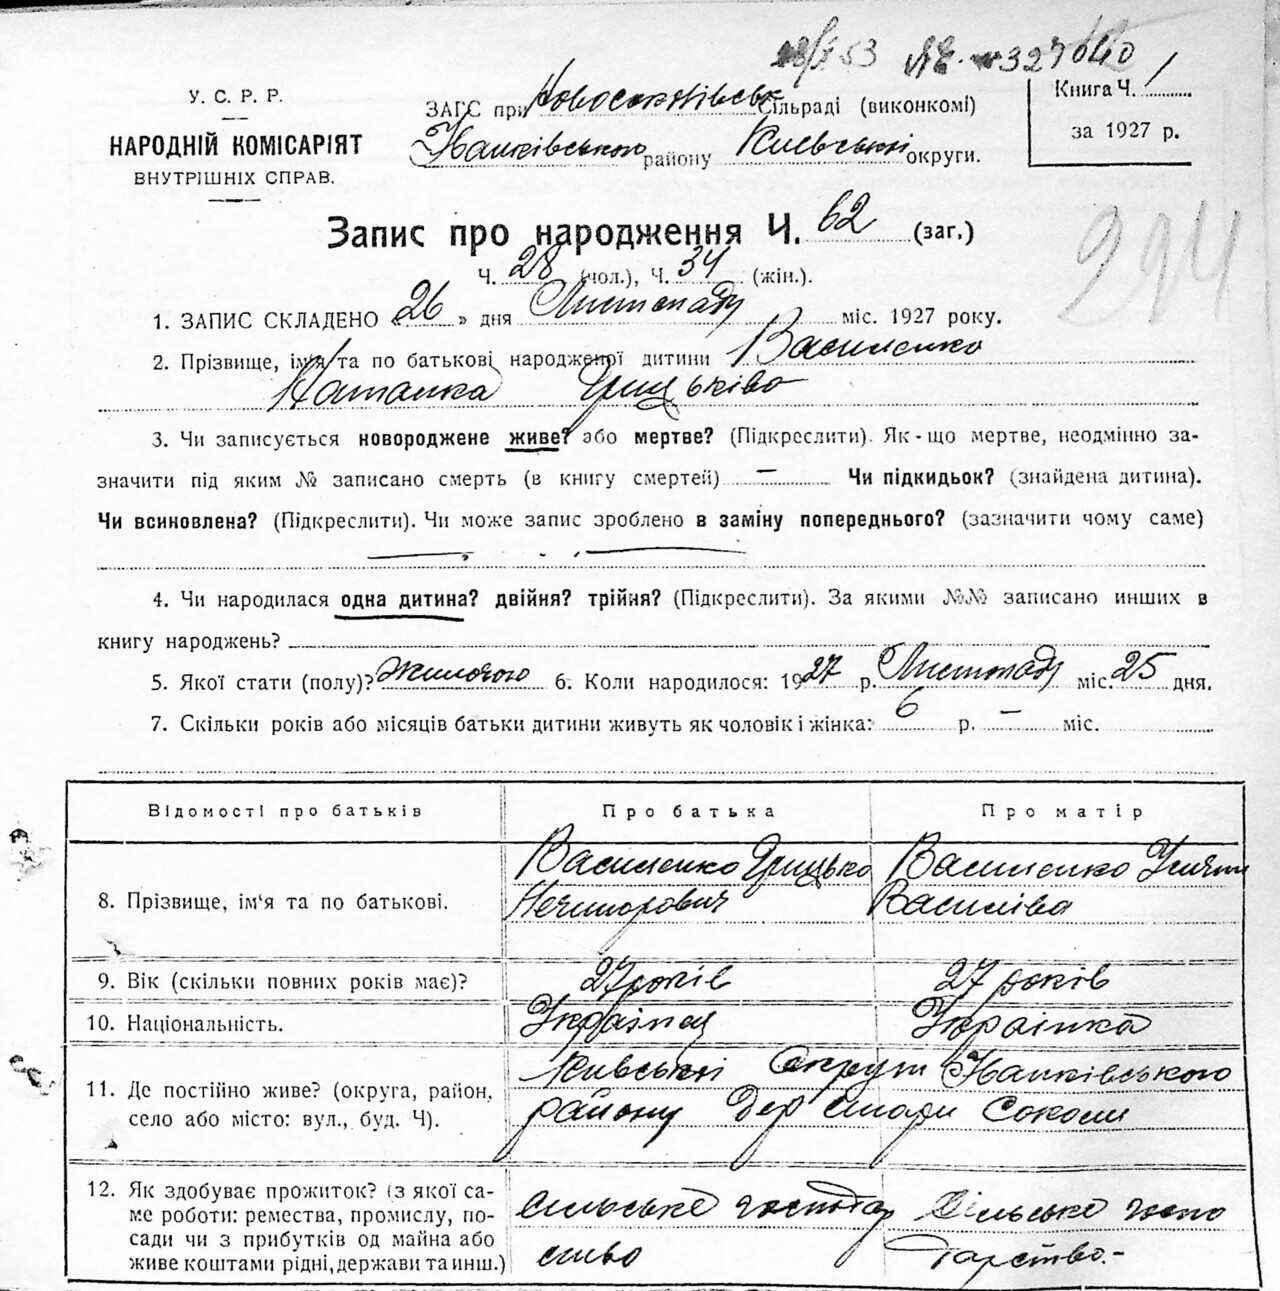 У. С. Р. Р.
НАРОДНІЙ КОМІСАРІЯТ
ВНУТРІШНІХ СПРАВ.
53 327040
ЗАГС при Сільраді (виконкомі)
району Київської округи.
Книга Ч. 1
за 1927 р.
Запис про народження Ч. 62 (заг.)
Ч. 28 (чол.), Ч. 34 (жін.).
1. ЗАПИС СКЛАДЕНО «26» дня Листопаду міс. 1927 року.
2. Прізвище, ім'я та по батькові народженої дитини Василенко
Наталка Грицьківа
3. Чи записується новороджене живе? або мертве? (Підкреслити). Як-що мертве, неодмінно за-
значити під яким № записано смерть (в книгу смертей) — Чи підкидьок? (знайдена дитина).
Чи всиновлена? (Підкреслити). Чи може запис зроблено в заміну попереднього? (зазначити чому саме)
4. Чи народилася одна дитина? двійня? трійня? (Підкреслити). За якими №№ записано инших в
книгу народжень?
5. Якої стати (полу)? жиночого 6. Коли народилося: 1927 р. Листопаду міс. 25 дня.
7. Скільки років або місяців батьки дитини живуть як чоловік і жінка: 6 р. — міс.
Відомості про батьків Про батька Про матір
8. Прізвище, ім'я та по батькові.
Василенко Грицько
Нечипорович
Василенко
Василіва
9. Вік (скільки повних років має)? 27 років 27 років
10. Національність. Українец Українка
11. Де постійно живе? (округа, район,
село або місто: вул., буд. Ч).
Округи
району Соколи
12. Як здобуває прожиток? (з якої са-
ме роботи: ремества, промислу, по-
сади чи з прибутків од майна або
живе коштами рідні, держави та инш.)
сильське господар
ство
Сільське госпо
тарство.-
294